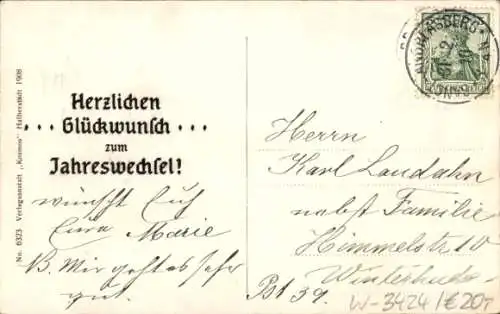 No. 6323 Verlagsanstalt „Kosmos“ Halberstadt 1908
Herzlichen
... Glückwunsch ...
zum
Jahreswechsel!
wünscht Euch
Eure Marie
NB. Mir geht es sehr
gut.
ANDREASBERG
Herrn
Karl Landahn
nebst Familie
Himmelstr. 10
Winterhude
Pst 39.
W-3424/€20,-